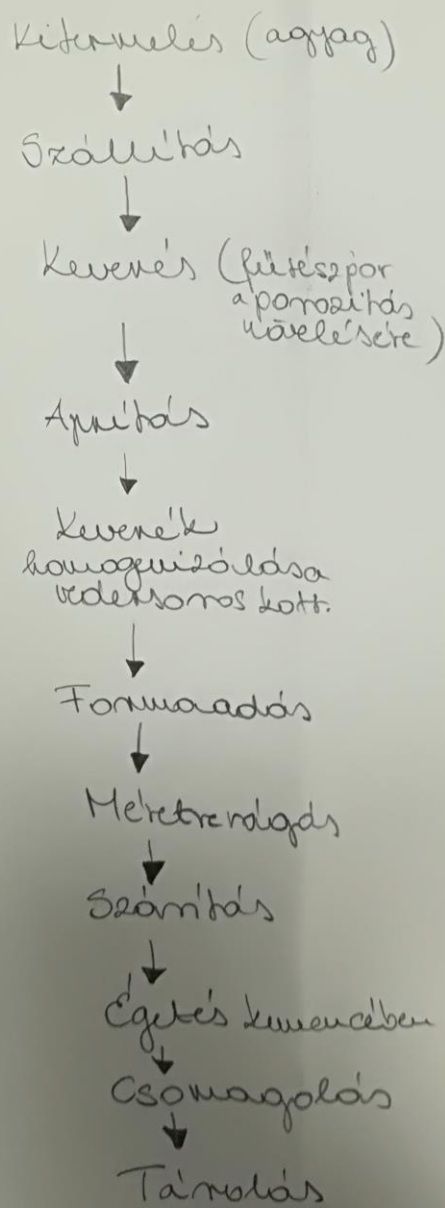 Kitermelés (agyag)
Szállítás
Keverés (fűrészpor
a porozitás
növelésére)
Aprítás
Keverék
homogenizálása
vedersoros kott.
Formaadás
Méretrevágás
Szárítás
Égetés kemencében
Csomagolás
Tárolás